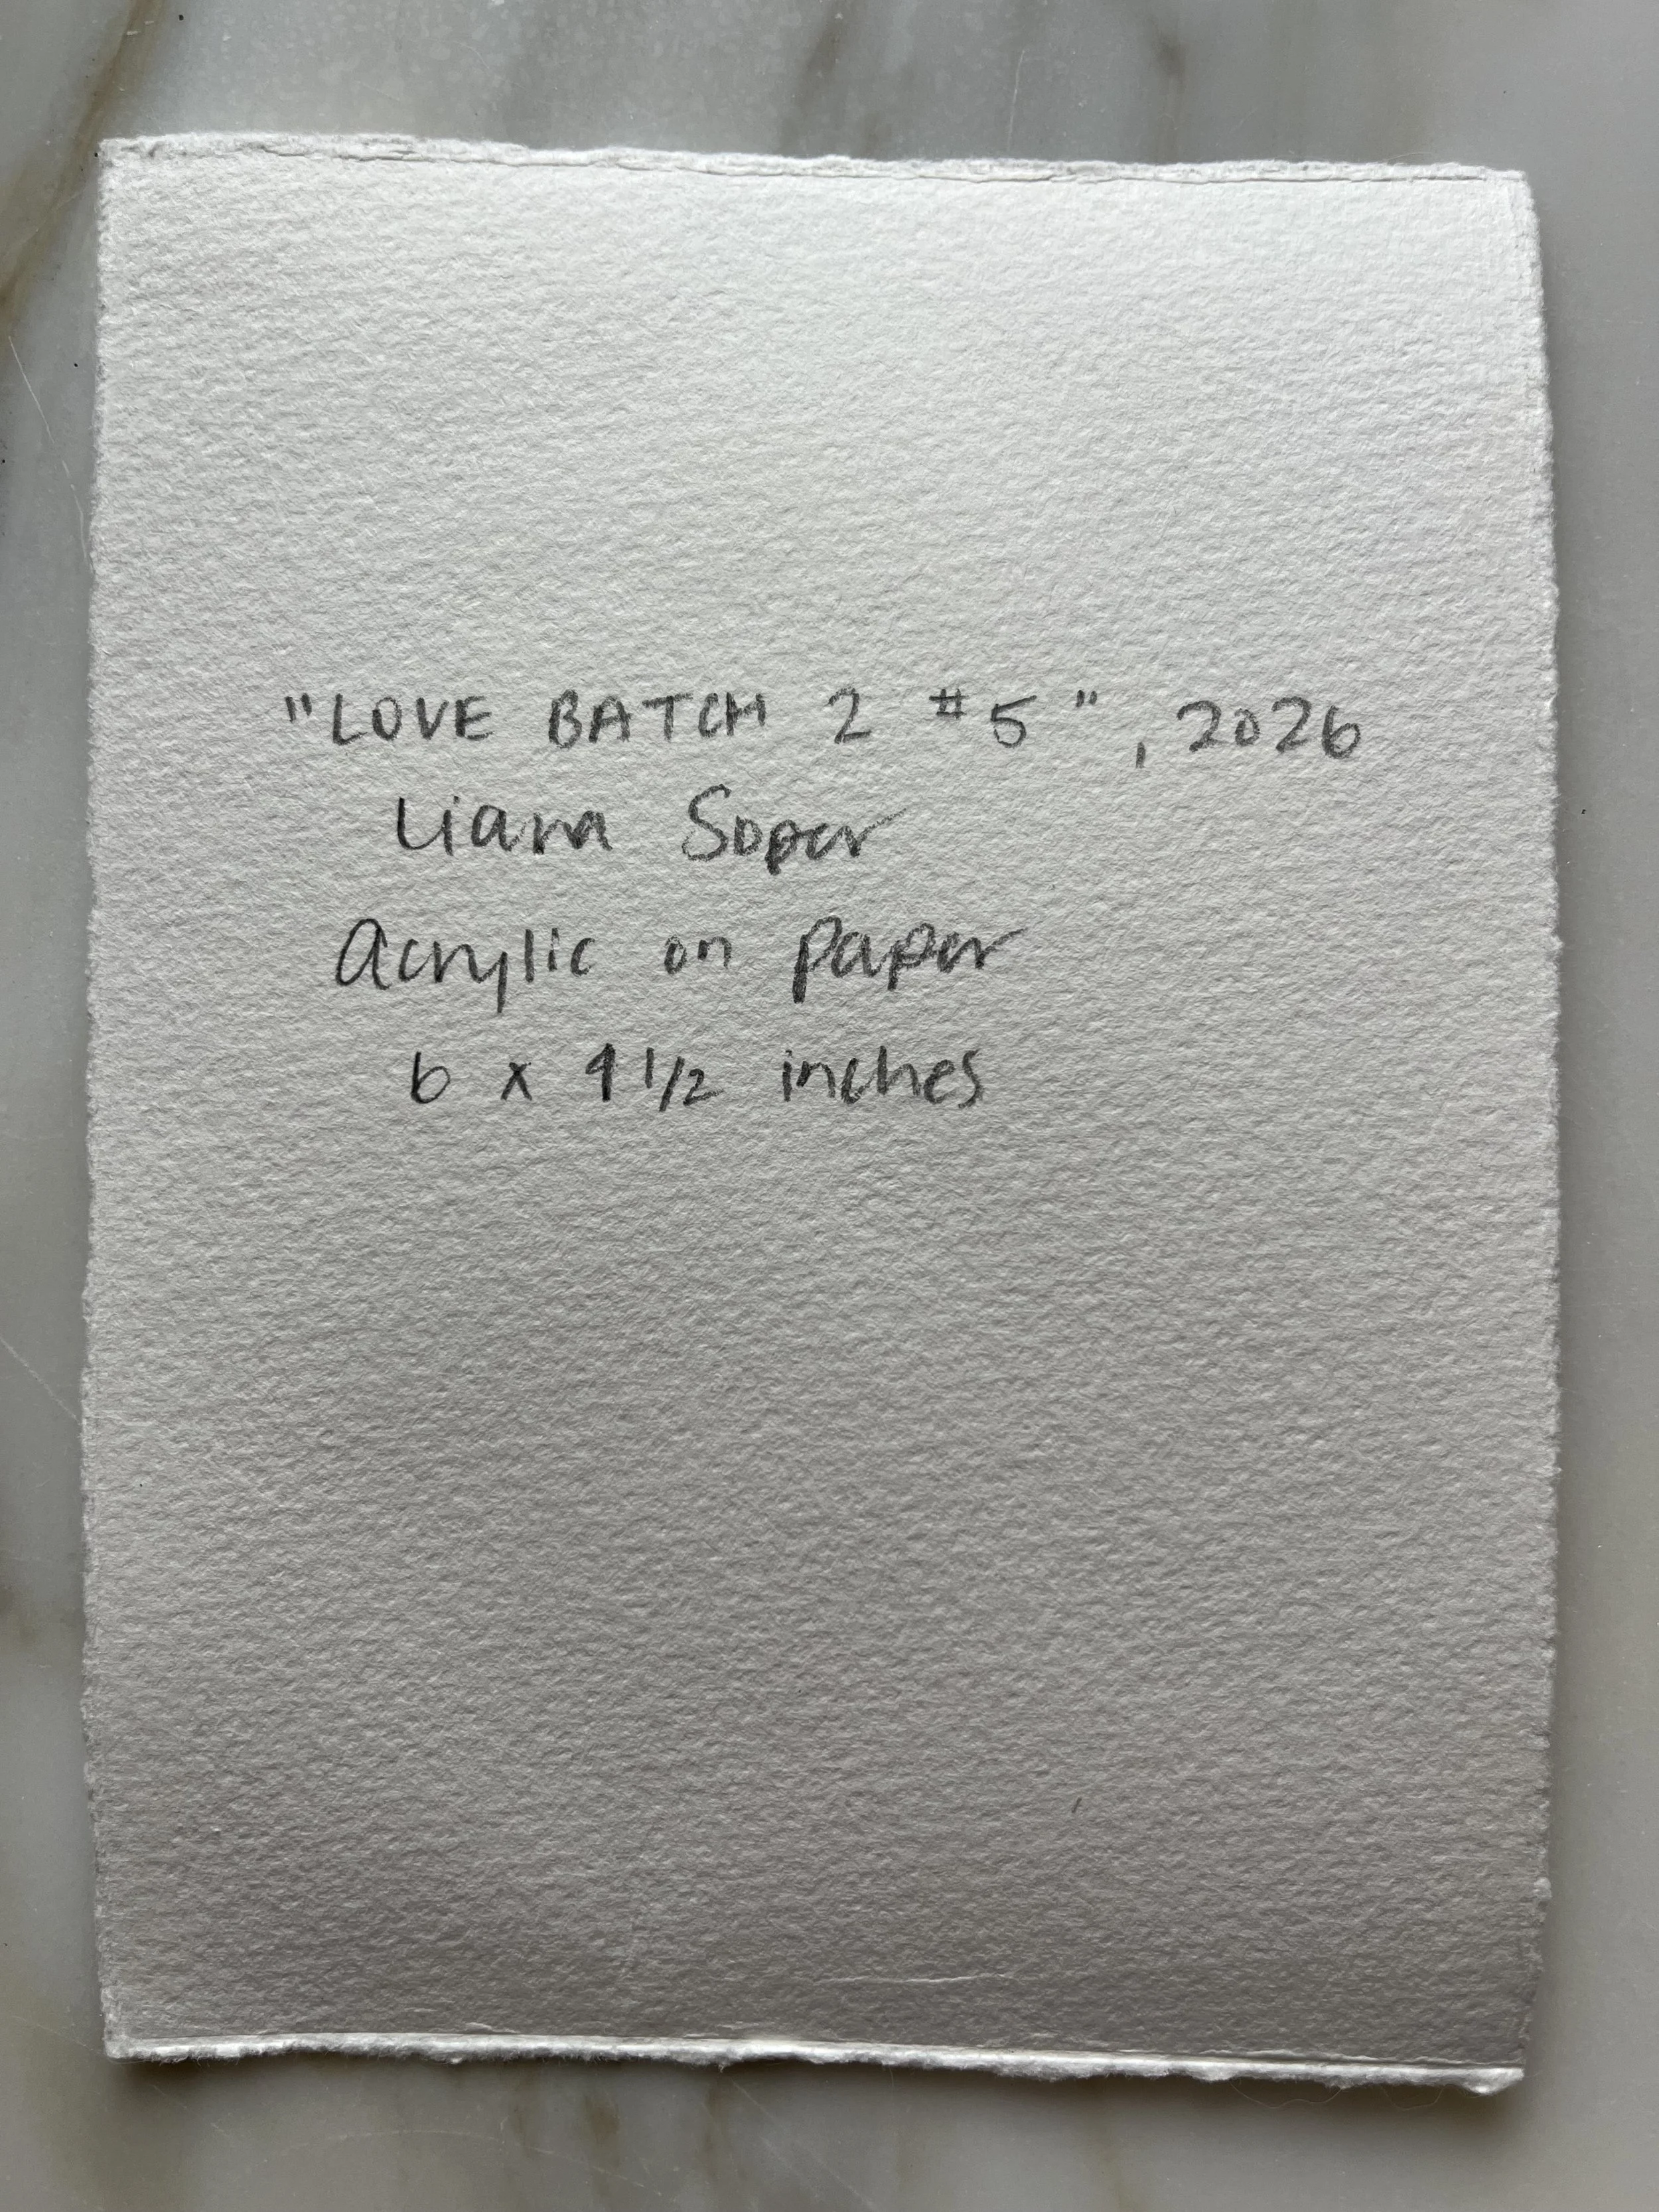 "LOVE BATCH 2 #5", 2026
Liana Soper
Acrylic on paper
6 x 4 1/2 inches